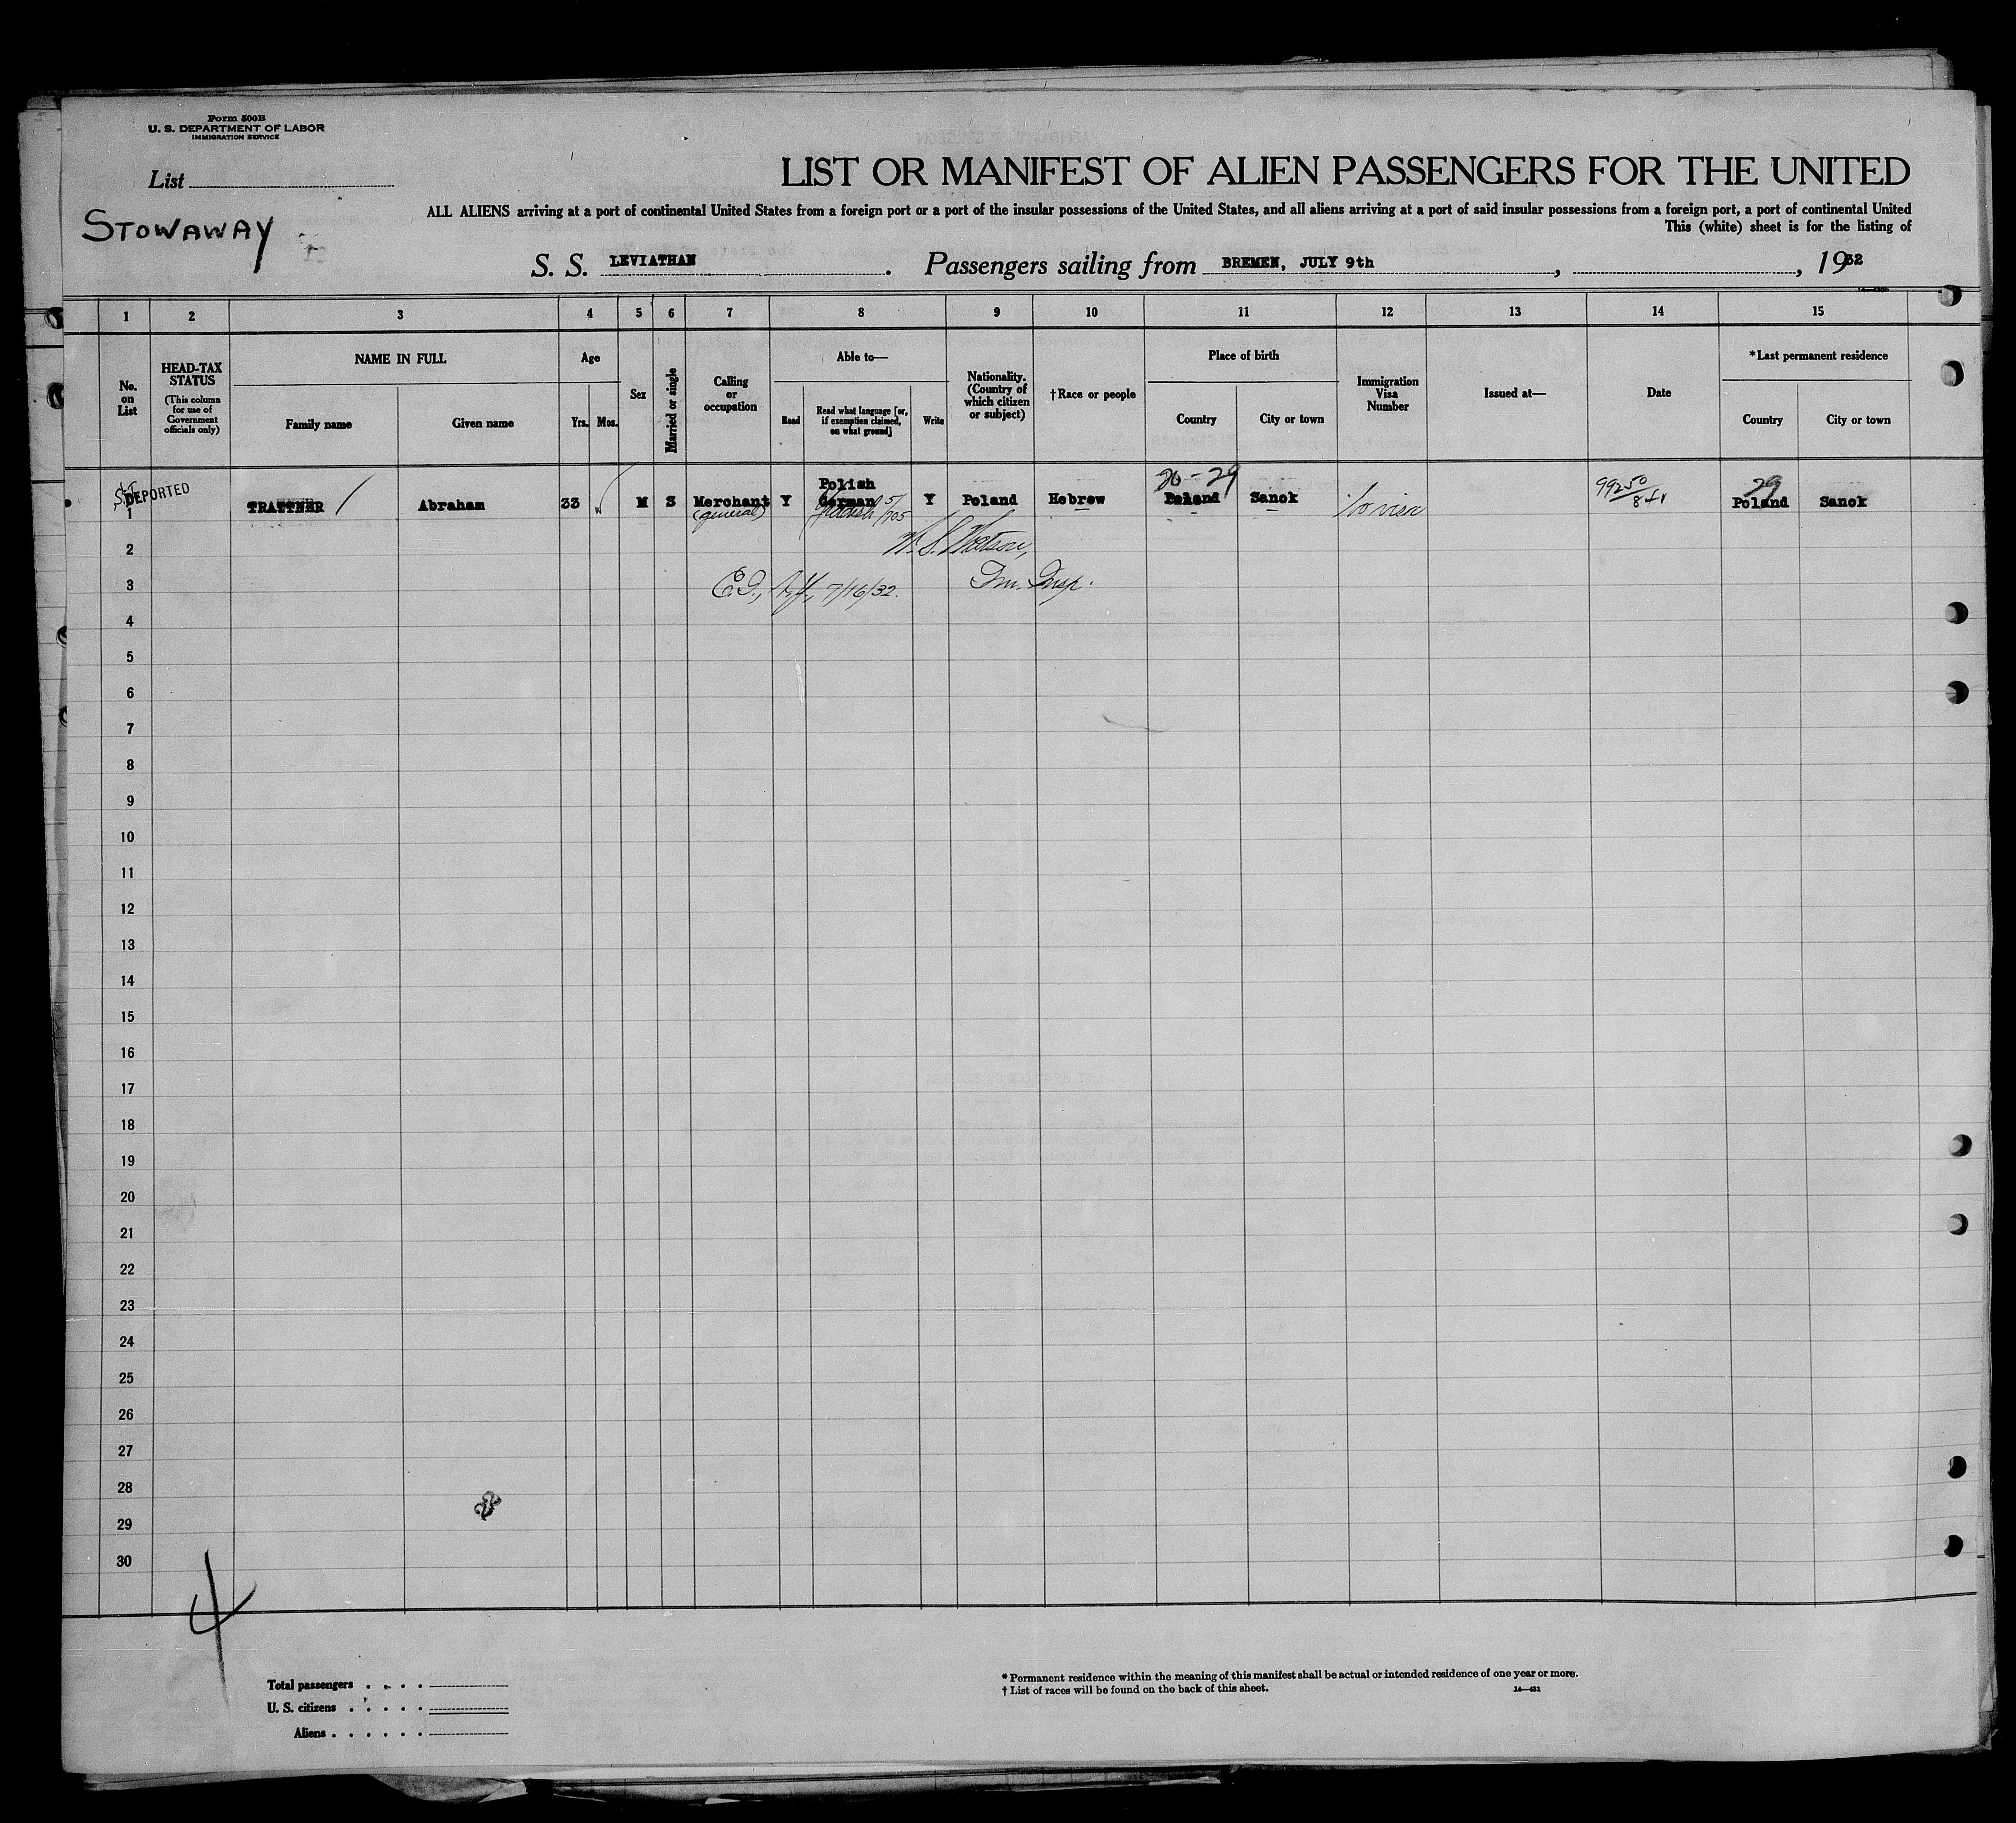 Form 500B
U. S. DEPARTMENT OF LABOR
IMMIGRATION SERVICE
List
STOWAWAY
LIST OR MANIFEST OF ALIEN PASSENGERS FOR THE UNITED
ALL ALIENS arriving at a port of continental United States from a foreign port or a port of the insular possessions of the United States, and all aliens arriving at a port of said insular possessions from a foreign port, a port of continental United
This (white) sheet is for the listing of
S. S. LEVIATHAN . Passengers sailing from BREMEN, JULY 9th , , 1932
1 2 3 4 5 6 7 8 9 10 11 12 13 14 15
No. on List
HEAD-TAX STATUS
(This column for use of Government officials only)
NAME IN FULL
Family name Given name
Age
Yrs. Mos.
Sex
Married or single
Calling or occupation
Able to—
Read
Read what language [or, if exemption claimed, on what ground]
Write
Nationality. (Country of which citizen or subject)
†Race or people
Place of birth
Country City or town
Immigration Visa Number
Issued at—
Date
*Last permanent residence
Country City or town
DEPORTED
1 TRATTNER Abraham 33 M S Merchant (general) Y Polish German Y Poland Hebrew Poland Sanok No visa Poland Sanok
29
2
3 7/16/32. Im. Insp.
4
5
6
7
8
9
10
11
12
13
14
15
16
17
18
19
20
21
22
23
24
25
26
27
28
29
30
Total passengers . . . .
U. S. citizens . . . . .
Aliens . . . . . .
* Permanent residence within the meaning of this manifest shall be actual or intended residence of one year or more.
† List of races will be found on the back of this sheet.